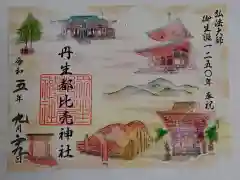 弘法大師
御生誕一二五〇年奉祝
丹生都比売神社
令和五年九月